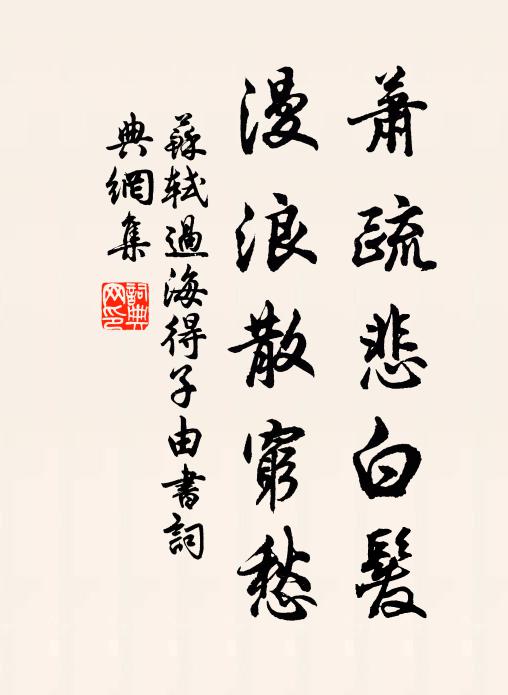 蕭疏悲白髮
漫浪散窮愁
蘇軾過海得子由書詞
典網集
詞典网印